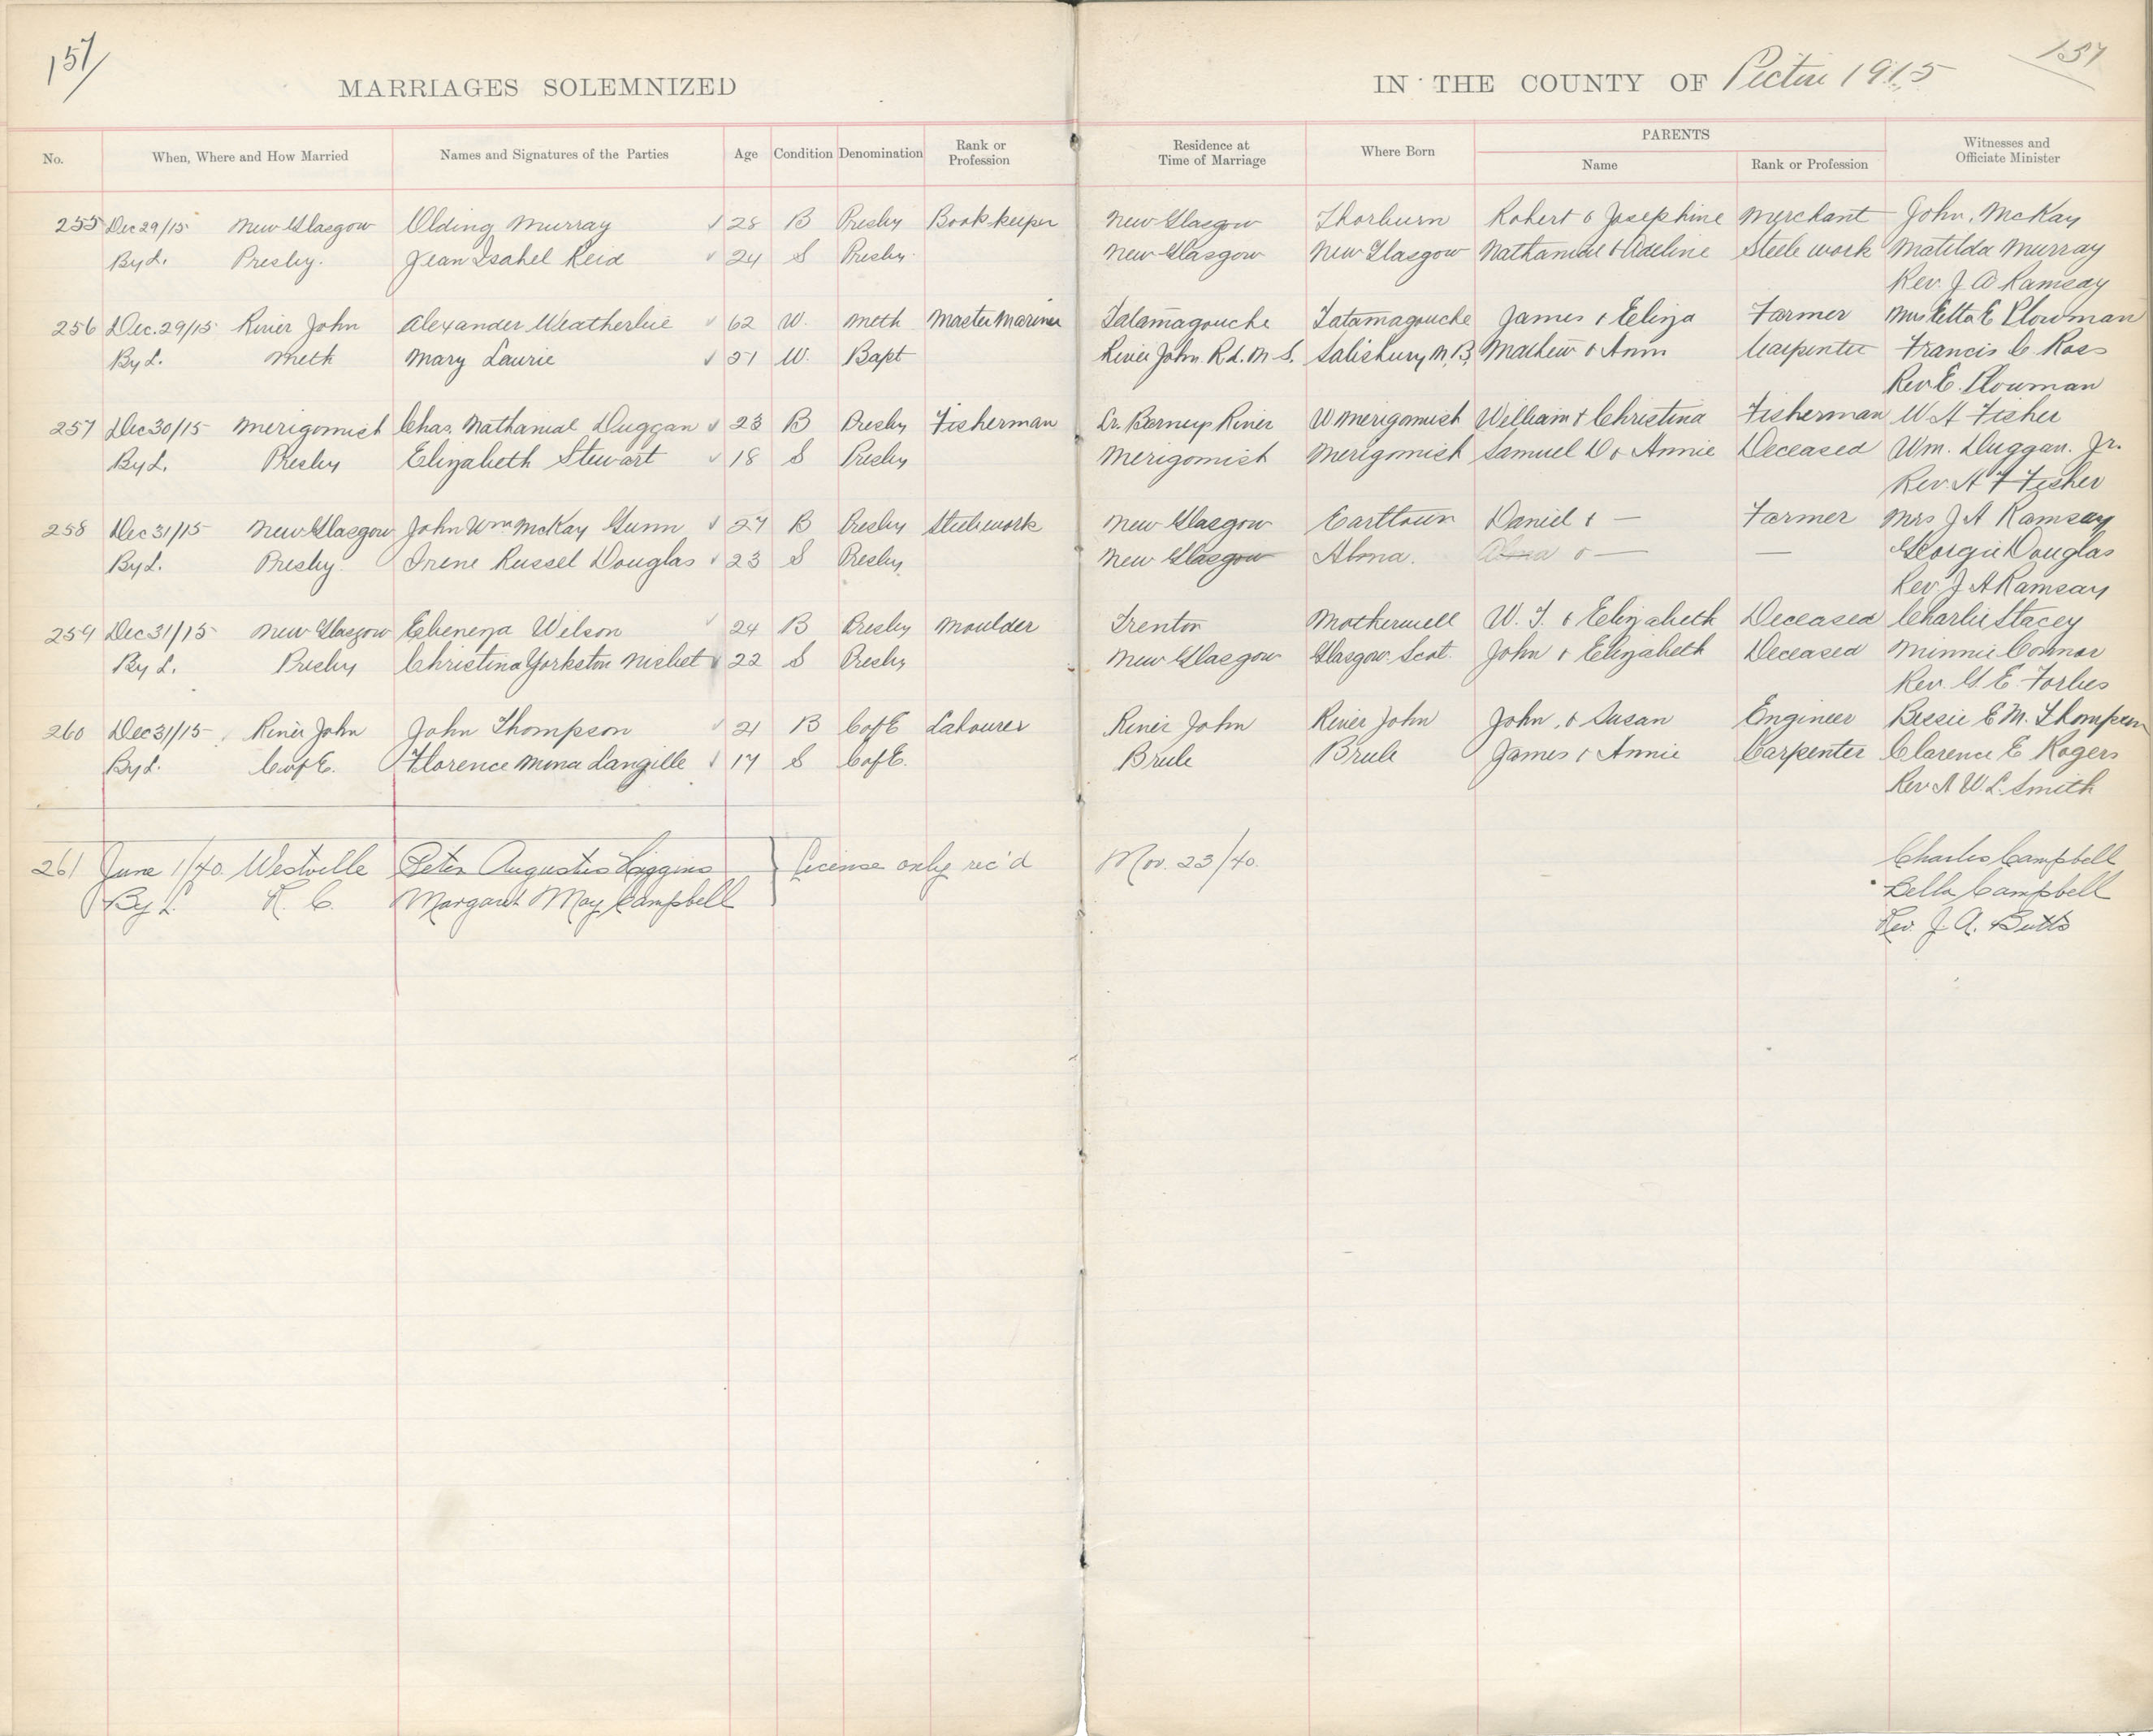 157
157
MARRIAGES SOLEMNIZED IN THE COUNTY OF Pictou 1915
No. When, Where and How Married Names and Signatures of the Parties Age Condition Denomination Rank or Profession Residence at Time of Marriage Where Born PARENTS Name Rank or Profession Witnesses and Officiate Minister
255 Dec 29/15 New Glasgow Olding Murray 28 B Presby Bookkeeper New Glasgow Thorburn Robert & Josephine Merchant John McKay
By L. Presby. Jean Isabel Reid 24 S Presby. New Glasgow New Glasgow Nathaniel & Adeline Steele work Matilda Murray
Rev. J A Ramsay
256 Dec. 29/15 River John Alexander Weatherbie 62 W. Meth Master Mariner Tatamagouche Tatamagouche James & Eliza Farmer Mrs Etta E Plowman
By L. Meth Mary Laurie 51 W. Bapt River John Rd. N. S. Salisbury N.B. Mathew & Ann Carpenter Francis C Ross
Rev E. Plowman
257 Dec 30/15 Merigomish Chas. Nathanial Duggan 23 B Presby Fisherman Lr. Barneys River W Merigomish William & Christina Fisherman W A Fisher
By L. Presby Elizabeth Stewart 18 S Presby Merigomish Merigomish Samuel D & Annie Deceased Wm. Duggan. Jr.
Rev. A F Fisher
258 Dec 31/15 New Glasgow John Wm McKay Gunn 27 B Presby Steelework New Glasgow Earltown Daniel & — Farmer Mrs J A Ramsay
By L. Presby. Irene Russel Douglas 23 S Presby New Glasgow Alma. Alma & — — Georgie Douglas
Rev. J A Ramsay
259 Dec 31/15 New Glasgow Ebeneza Wilson 24 B Presby Moulder Trenton Motherwell W. T. & Elizabeth Deceased Charlie Stacey
By L. Presby Christina Yorkston Nisbet 22 S Presby New Glasgow Glasgow. Scot. John & Elizabeth Deceased Minnie Connor
Rev. G E. Forbes
260 Dec 31/15 River John John Thompson 21 B C of E Labourer River John River John John & Susan Engineer Bessie E M. Thompson
By L. C of E. Florence Mina Langille 17 S C of E. Brule Brule James & Annie Carpenter Clarence E Rogers
Rev A W. L. Smith
261 June 1/40 Westville Peter Augustus Liggins } License only rec'd Nov. 23/40. Charles Campbell
By L. R. C. Margaret May Campbell Bella Campbell
Rev J. A. Butts